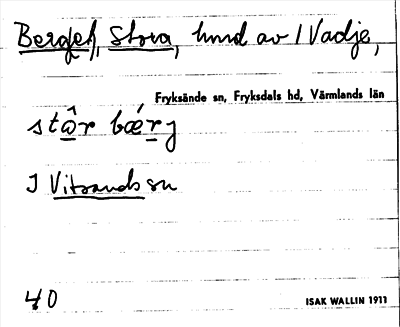 Berget, Stora, hmd av I Vadje,
Fryksände sn, Fryksdals hd, Värmlands län
stôr bǽrj
I Vitsands sn
40
ISAK WALLIN 1911